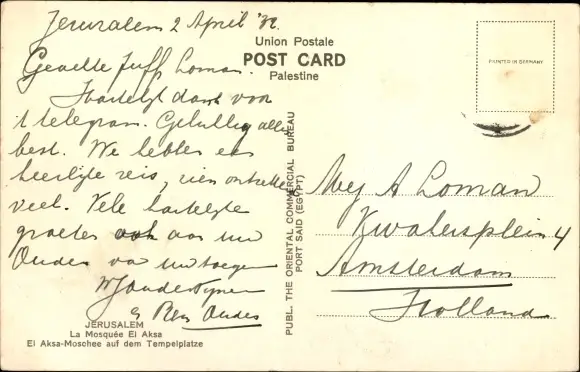 Jeruzalem 2 April '32.
Union Postale
POST CARD
Palestine
PRINTED IN GERMANY
Geachte Juff Loman.
Hartelijk dank voor
't telegram. Gelukkig alles
best. We hebben een
heerlijke reis, zien ontzettend
veel. Vele hartelijke
groeten ook aan uw
Ouders van uw toegen
& Ouders
PUBL. THE ORIENTAL COMMERCIAL BUREAU
PORT SAID (EGYPT)
Mej A Loman
Amsterdam
Holland
JERUSALEM
La Mosquée El Aksa
El Aksa-Moschee auf dem Tempelplatze